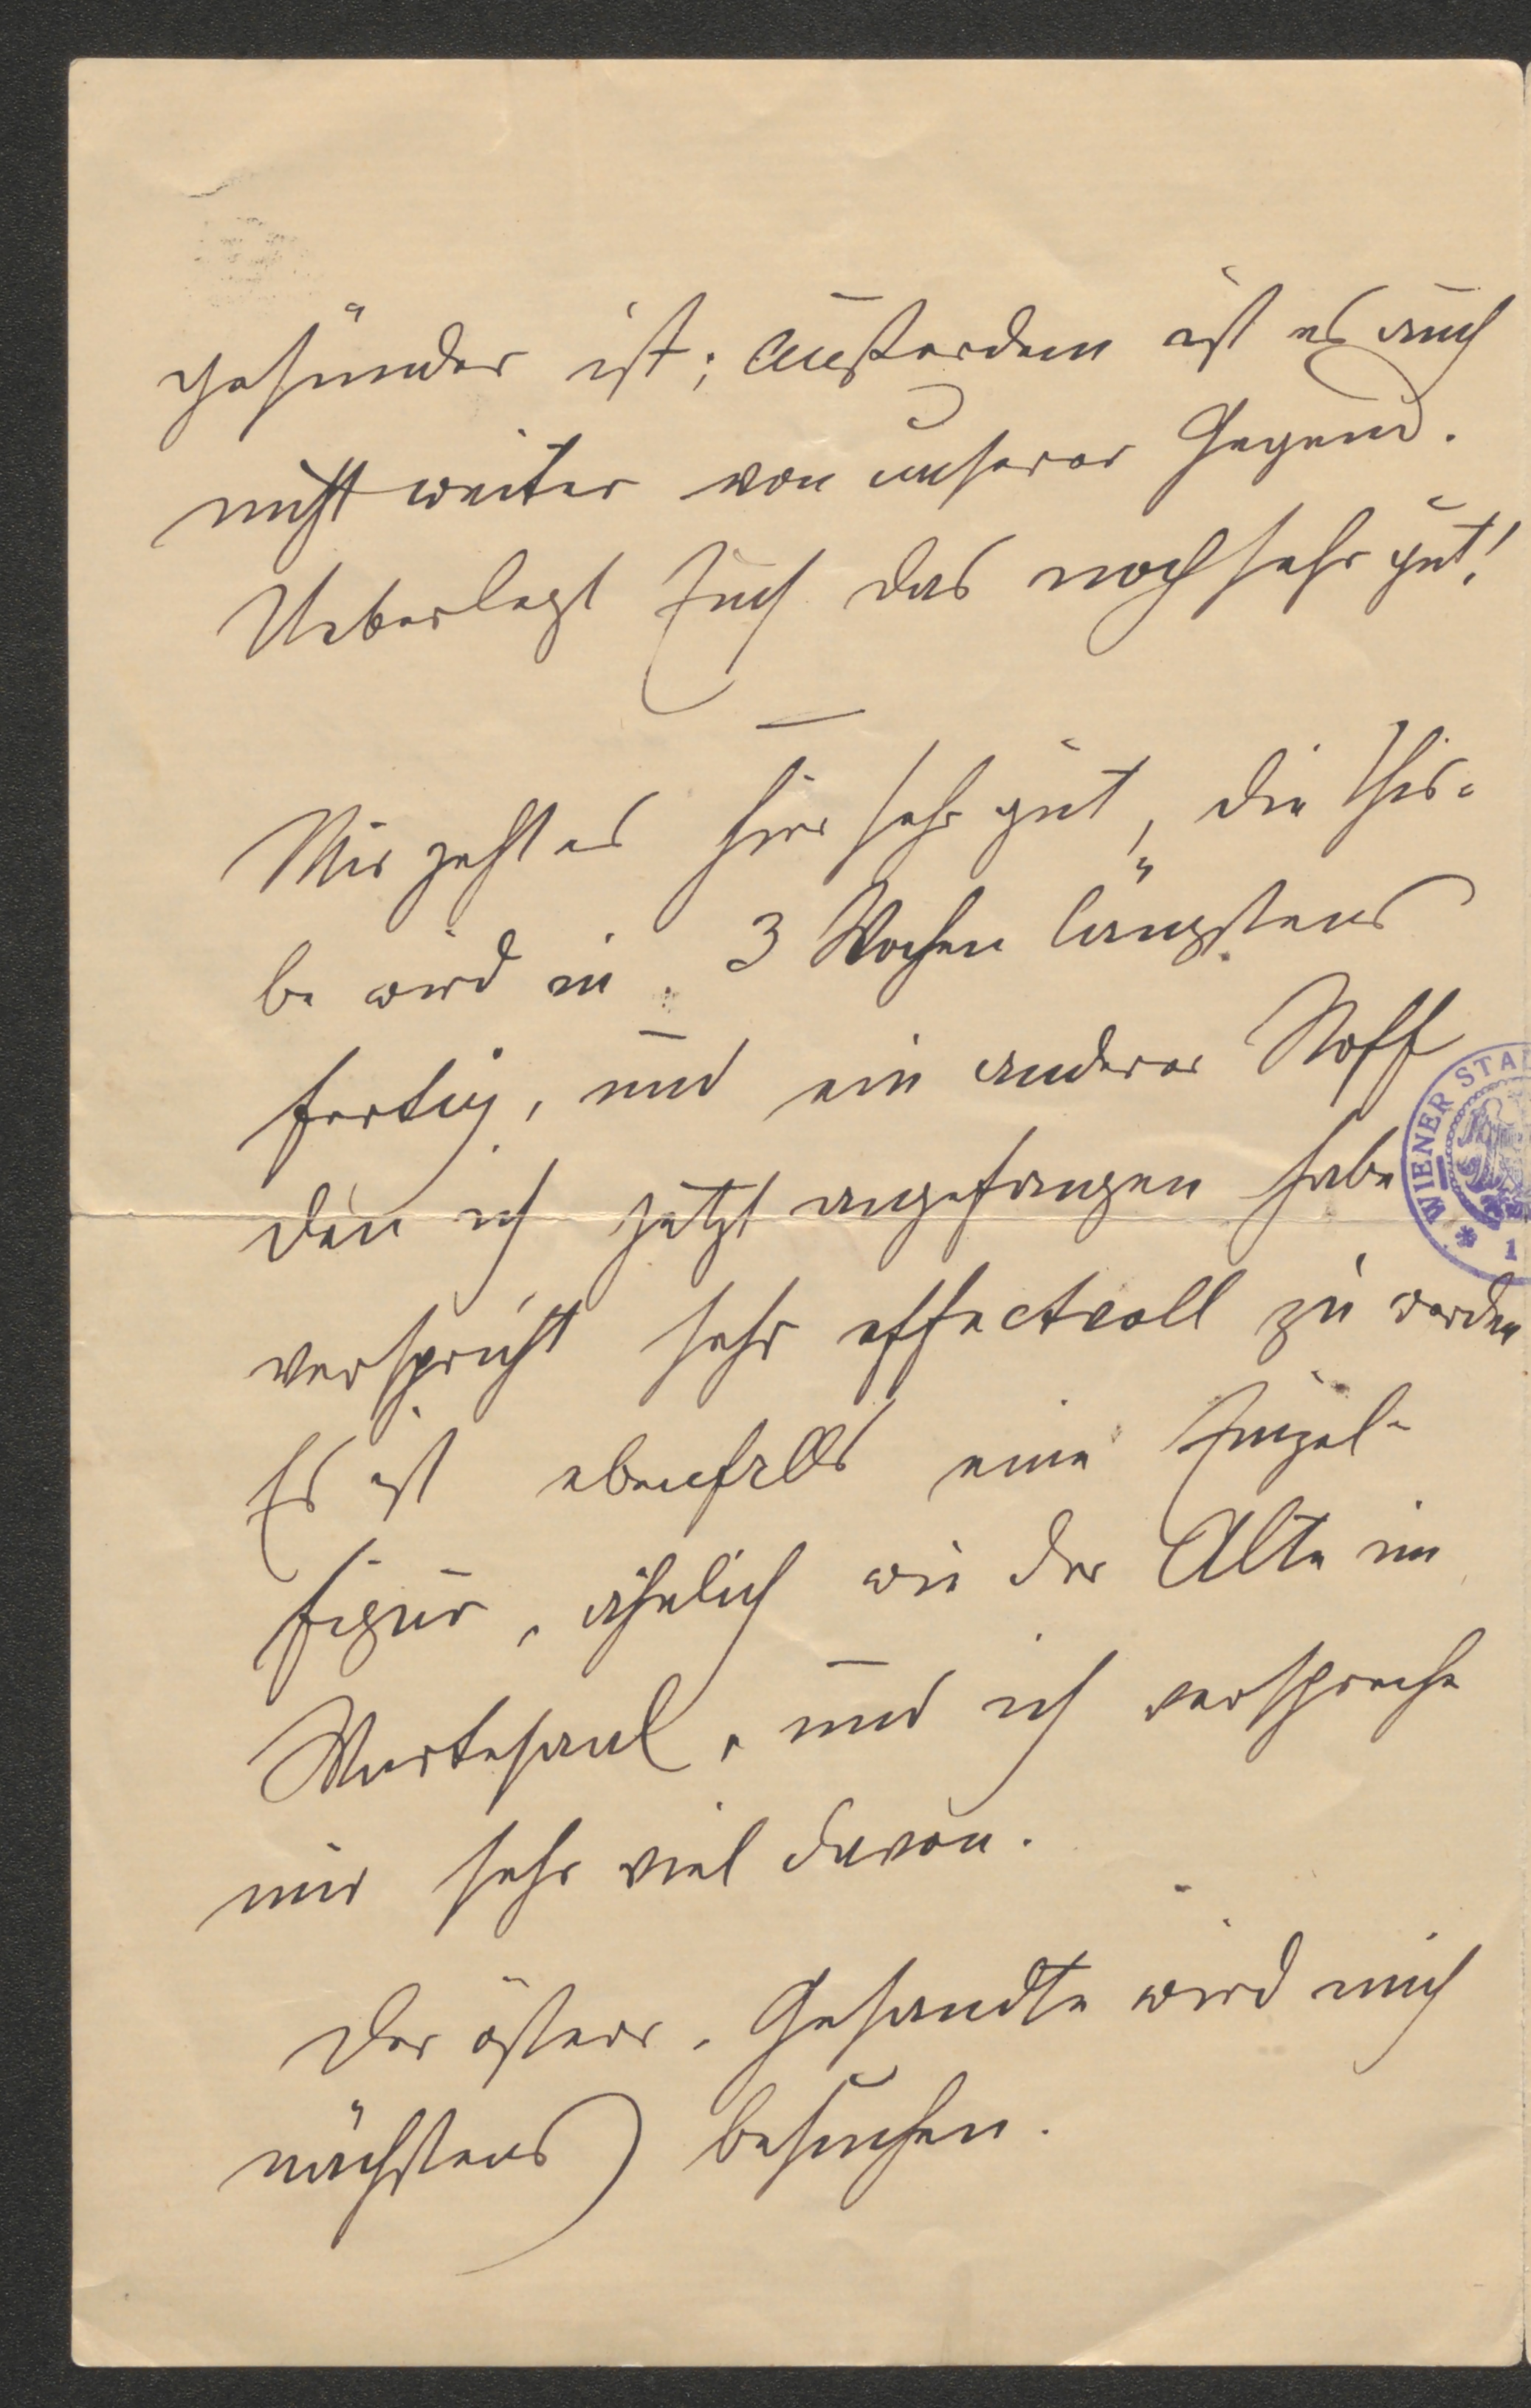 gesünder ist; außerdem ist es auch
nicht weiter von unserer Gegend.
Ueberlegt Euch das noch sehr gut!
Mir geht es hier sehr gut, die This-
be wird in 3 Wochen längstens
fertig, und ein anderer Stoff
den ich jetzt angefangen habe
verspricht sehr effectvoll zu werden
Es ist ebenfalls eine Einzel-
figur, ähnlich wie der Alte im
Wartesaal, und ich verspreche
mir sehr viel davon.
Der österr. Gesandte wird mich
nächstens besuchen.
WIENER STA
* 1